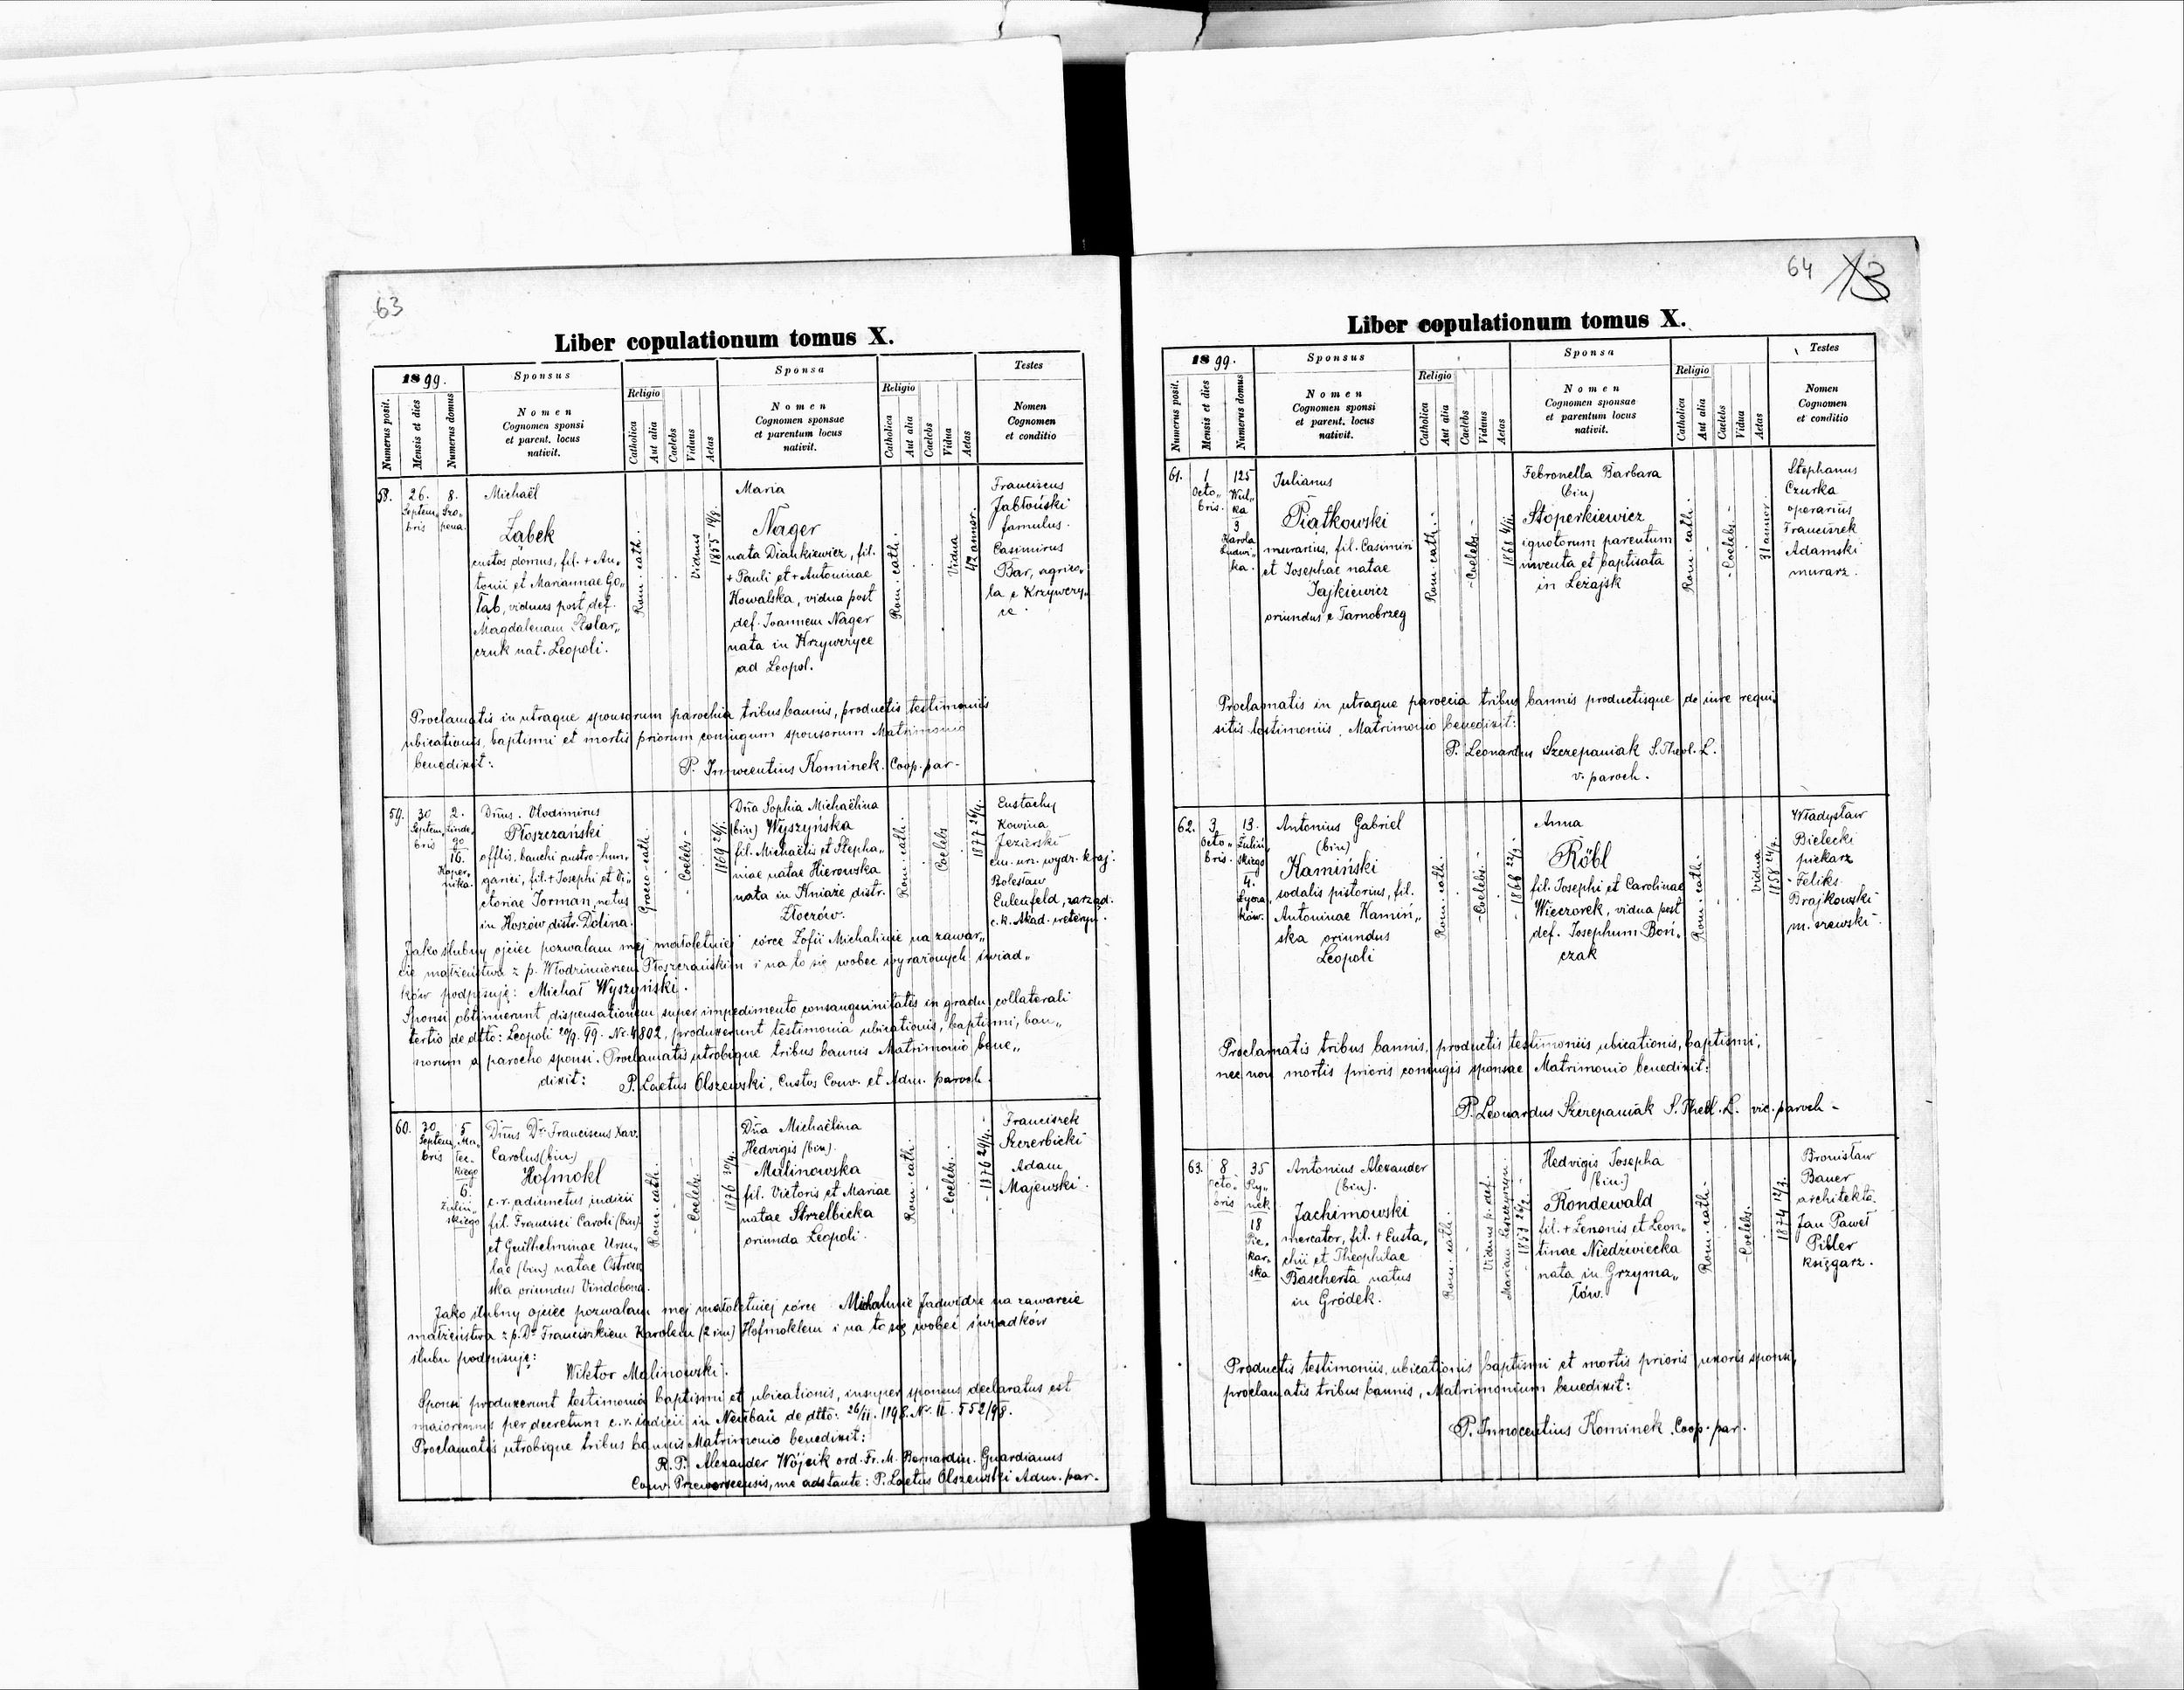 63
Liber copulationum tomus X.
1899.
Sponsus
Sponsa
Testes
Religio
Religio
Numerus posit.
Mensis et dies
Numerus domus
Nomen
Cognomen sponsi
et parent. locus
nativit.
Catholica
Aut alia
Caelebs
Viduus
Aetas
Nomen
Cognomen sponsae
et parentum locus
nativit.
Catholica
Aut alia
Caelebs
Vidua
Aetas
Nomen
Cognomen
et conditio
58.
26.
Septem„
bris
8.
Michaël
Ząbek
custos domus, fil. + An„
tonii et Mariannae Go„
łąb, viduus post def.
Magdalenam Stolar„
czuk nat. Leopoli.
Rom. cath.
Viduus
Maria
Nager
nata Diankiewicz, fil.
+ Pauli et + Antoninae
Kowalska, vidua post
def. Joannem Nager
nata in Krzywczyce
ad Leopol.
Rom. cath.
Vidua
42 annor.
Franciscus
Jabłoński
famulus.
Casimirus
Bar, agrico„
la e Krzywczy„
ce.
Proclamatis in utraque sponsorum parochia tribus bannis, productis testimoniis
ubicationis, baptismi et mortis priorum coniugum sponsorum Matrimonio
benedixit:
P. Innocentius Kominek. Coop. par.
59.
30
Septem„
bris
2.
Linde„
go
16.
Koper„
nika.
Dnus. Vlodimirus
Płoszczański
offlis. banchi austro-hun„
garici, fil. + Josephi et Vi„
ctoriae Torman, natus
in Hoszów distr. Dolina.
Graeco-cath.
Coelebs
1869 26/1.
Dna Sophia Michaëlina
(bin) Wyszyńska
fil. Michaëlis et Stepha„
niae natae Hierowska
nata in Kniaże distr.
Złoczów.
Rom. cath.
Coelebs
Eustachy
Kowina
Jezierski
em. urz. wydz. kraj.
Bolesław
Eulenfeld, zarząd.
c. k. Akad. weteryn.
Jako ślubny ojciec pozwalam mej małoletniej córce Zofii Michalinie na zawar„
cie małżeństwa z p. Włodzimierzem Płoszczańskim i na to się wobec wyrażonych świad„
ków podpisuję: Michał Wyszyński.
Sponsi obtinuerunt dispensationem super impedimento consanguinitatis in gradu collaterali
tertio de dtto: Leopoli 20/9. 99. Nr. 4802, produxerunt testimonia ubicationis, baptismi, ban„
norum a parocho sponsi. Proclamatis utrobique tribus bannis Matrimonio bene„
dixit:
P. Laetus Olszewski, Custos Conv. et Adm. paroch.
60.
30
Septem„
bris
5
Ma„
łec„
kiego
6.
Zuliń„
skiego
Dnus Dr. Franciscus Xav.
Carolus (bin)
Hofmokl
c. r. adiunctus iudicii
fil. Francisci Caroli (bin)
et Guilhelminae Ursu„
lae (bin) natae Ostrow„
ska oriundus Vindobona.
Rom. cath.
Coelebs
Dna Michaëlina
Hedvigis (bin).
Malinowska
fil. Victoris et Mariae
natae Strzelbicka
oriunda Leopoli.
Rom. cath.
Coelebs.
Franciszek
Szczerbicki
Adam
Majewski.
Jako ślubny ojciec pozwalam mej małoletniej córce Michalinie Jadwidze na zawarcie
małżeństwa z p. Dr. Franciszkiem Karolem (2 im) Hofmoklem i na to się wobec świadków
ślubu podpisuję:
Wiktor Malinowski.
Sponsi produxerunt testimonia baptismi et ubicationis, insuper sponsus declaratus est
maiorennis per decretum c. r. iudicii in Neubau de dtto: 26/II. 1898. Nr. II. 552/98.
Proclamatis utrobique tribus bannis Matrimonio benedixit:
R. P. Alexander Wójcik ord. Fr. M. Bernardin. Guardianus
Conv. Przeworscensis, me adstante: P. Laetus Olszewski Adm. par.
64
13
Liber copulationum tomus X.
1899.
Sponsus
Sponsa
Testes
Religio
Religio
Numerus posit.
Mensis et dies
Numerus domus
Nomen
Cognomen sponsi
et parent. locus
nativit.
Catholica
Aut alia
Caelebs
Viduus
Aetas
Nomen
Cognomen sponsae
et parentum locus
nativit.
Catholica
Aut alia
Caelebs
Vidua
Aetas
Nomen
Cognomen
et conditio
61.
1
Octo„
bris.
125
Wul„
ka
3
Karola
Ludwi„
ka.
Julianus
Piątkowski
murarius, fil. Casimiri
et Josephae natae
Jajkiewicz
oriundus e Tarnobrzeg
Rom. cath.
Coelebs.
Febronella Barbara
(bin)
Stoperkiewicz
ignotorum parentum
inventa et baptisata
in Leżajsk
Rom. cath.
Coelebs.
31 annor.
Stephanus
Czurka
operarius
Franciszek
Adamski
murarz.
Proclamatis in utraque paroecia tribus bannis productisque de iure requi„
sitis testimoniis, Matrimonio benedixit:
P. Leonardus Szczepaniak S. Theol. L.
v. paroch.
62.
3
Octo„
bris.
13.
Zuliń„
skiego
4.
Łycza„
ków.
Antonius Gabriel
(bin)
Kamiński
sodalis pistorius, fil.
Antoninae Kamiń„
ska oriundus
Leopoli
Rom. cath.
Coelebs.
Anna
Röbl
fil. Josephi et Carolinae
Wieczorek, vidua post
def. Josephum Boń„
czak
Rom. cath.
Vidua
Władysław
Bielecki
piekarz
Feliks
Brajkowski
m. szewski.
Proclamatis tribus bannis, productis testimoniis ubicationis, baptismi,
nec non mortis prioris coniugis sponsae Matrimonio benedixit:
P. Leonardus Szczepaniak S. Theol. L. vic. paroch
63.
8
Octo„
bris
35
Ry„
nek
18
Pie„
kar„
ska
Antonius Alexander
(bin).
Jachimowski
mercator, fil. + Eusta„
chii et Theophilae
Bascherta natus
in Gródek.
Rom. cath.
Viduus p. def.
Hedvigis Josepha
(bin)
Rondewald
fil. + Zenonis et Leon„
tinae Niedzwiecka
nata in Grzyma„
łów.
Rom. cath.
Coelebs.
1874 12/3.
Bronisław
Bauer
architekta.
Jan Paweł
Piller
księgarz.
Productis testimoniis, ubicationis baptismi et mortis prioris uxoris sponsi,
proclamatis tribus bannis, Matrimonium benedixit:
P. Innocentius Kominek. Coop. par.